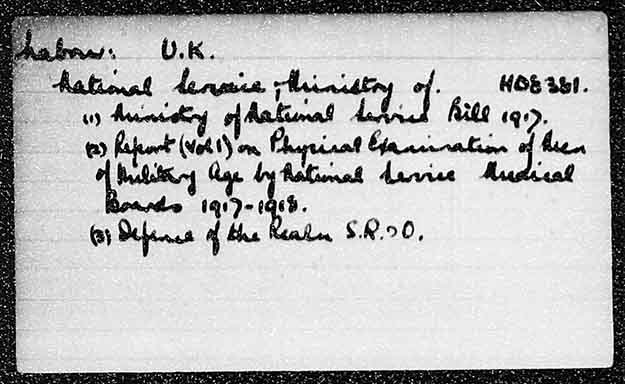 Labour: U.K.
National Service, Ministry of. HD8381.
(1) Ministry of National Service Bill 1917.
(2) Report (Vol 1) on Physical Examination of Men
of Military Age by National Service Medical
Boards 1917-1918.
(3) Defence of the Realm S.R.&O.